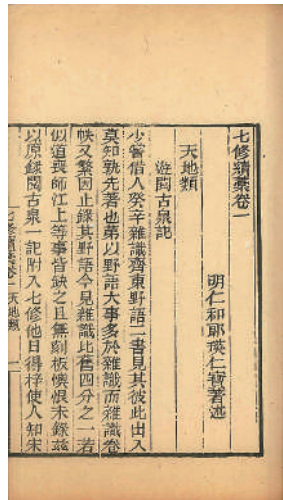 七修續藁卷一
明仁和郎瑛仁寶著述
天地類
遊閱古泉記
少嘗借人癸辛雜識齊東野語二書見其彼此出入
莫知孰先著也第以野語大事多於雜識而雜識卷
帙又繁因止錄其野語今見雜識比舊四分之一若
似道喪師江上等事皆缺之且無刻板懊恨未錄茲
以原錄閱古泉一記附入七修他日得梓使人知宋
七修續藁卷一 天地類 一